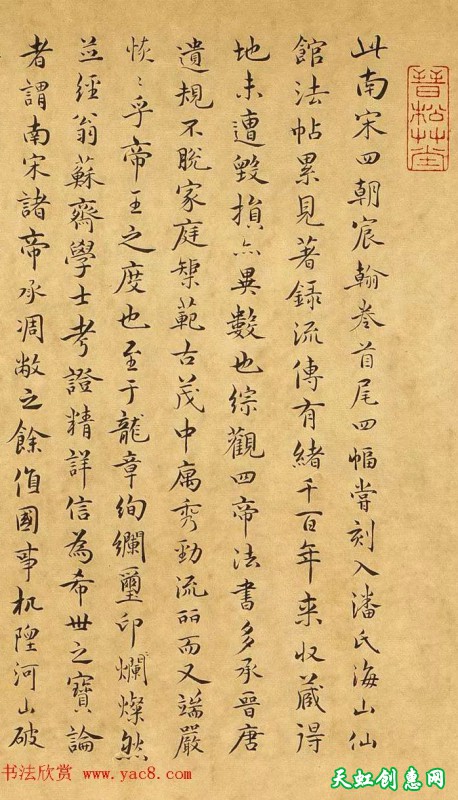 晉松堂
此南宋四朝宸翰卷首尾四幅嘗刻入潘氏海山仙
館法帖累見著錄流傳有緒千百年来收藏得
地未遭毀損亦異數也綜觀四帝法書多承晉唐
遺規不脫家庭榘範古茂中寓秀勁流丽而又端嚴
恢〻乎帝王之度也至于龍章絢斕璽印爛燦然
並經翁蘇齋學士考證精詳信為希世之寶論
者謂南宋諸帝承凋敝之餘值國事机隉河山破
书法欣赏 www.yac8.com
天虹创惠网